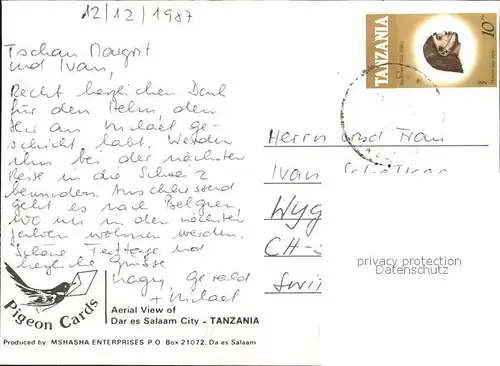 12/12/1987
Tschau Margrit
und Ivan,
Recht herzlichen Dank
für den Helm, den
Ihr an Michael ge-
schickt habt. Werden
ihn bei der nächsten
Reise in die Schweiz
bewundern. Anschliessend
geht es nach Belgien,
wo wir in den nächsten
Jahren wohnen werden.
Schöne Festtage und
herzliche Grüsse
Magy, Gérald
+ Michael
TANZANIA
10/-
Herrn und Frau
Ivan
Wyg
CH-
Swi
privacy protection
Datenschutz
Pigeon Cards
Aerial View of
Dar es Salaam City - TANZANIA
Produced by MSHASHA ENTERPRISES P.O. Box 21072, Da es Salaam